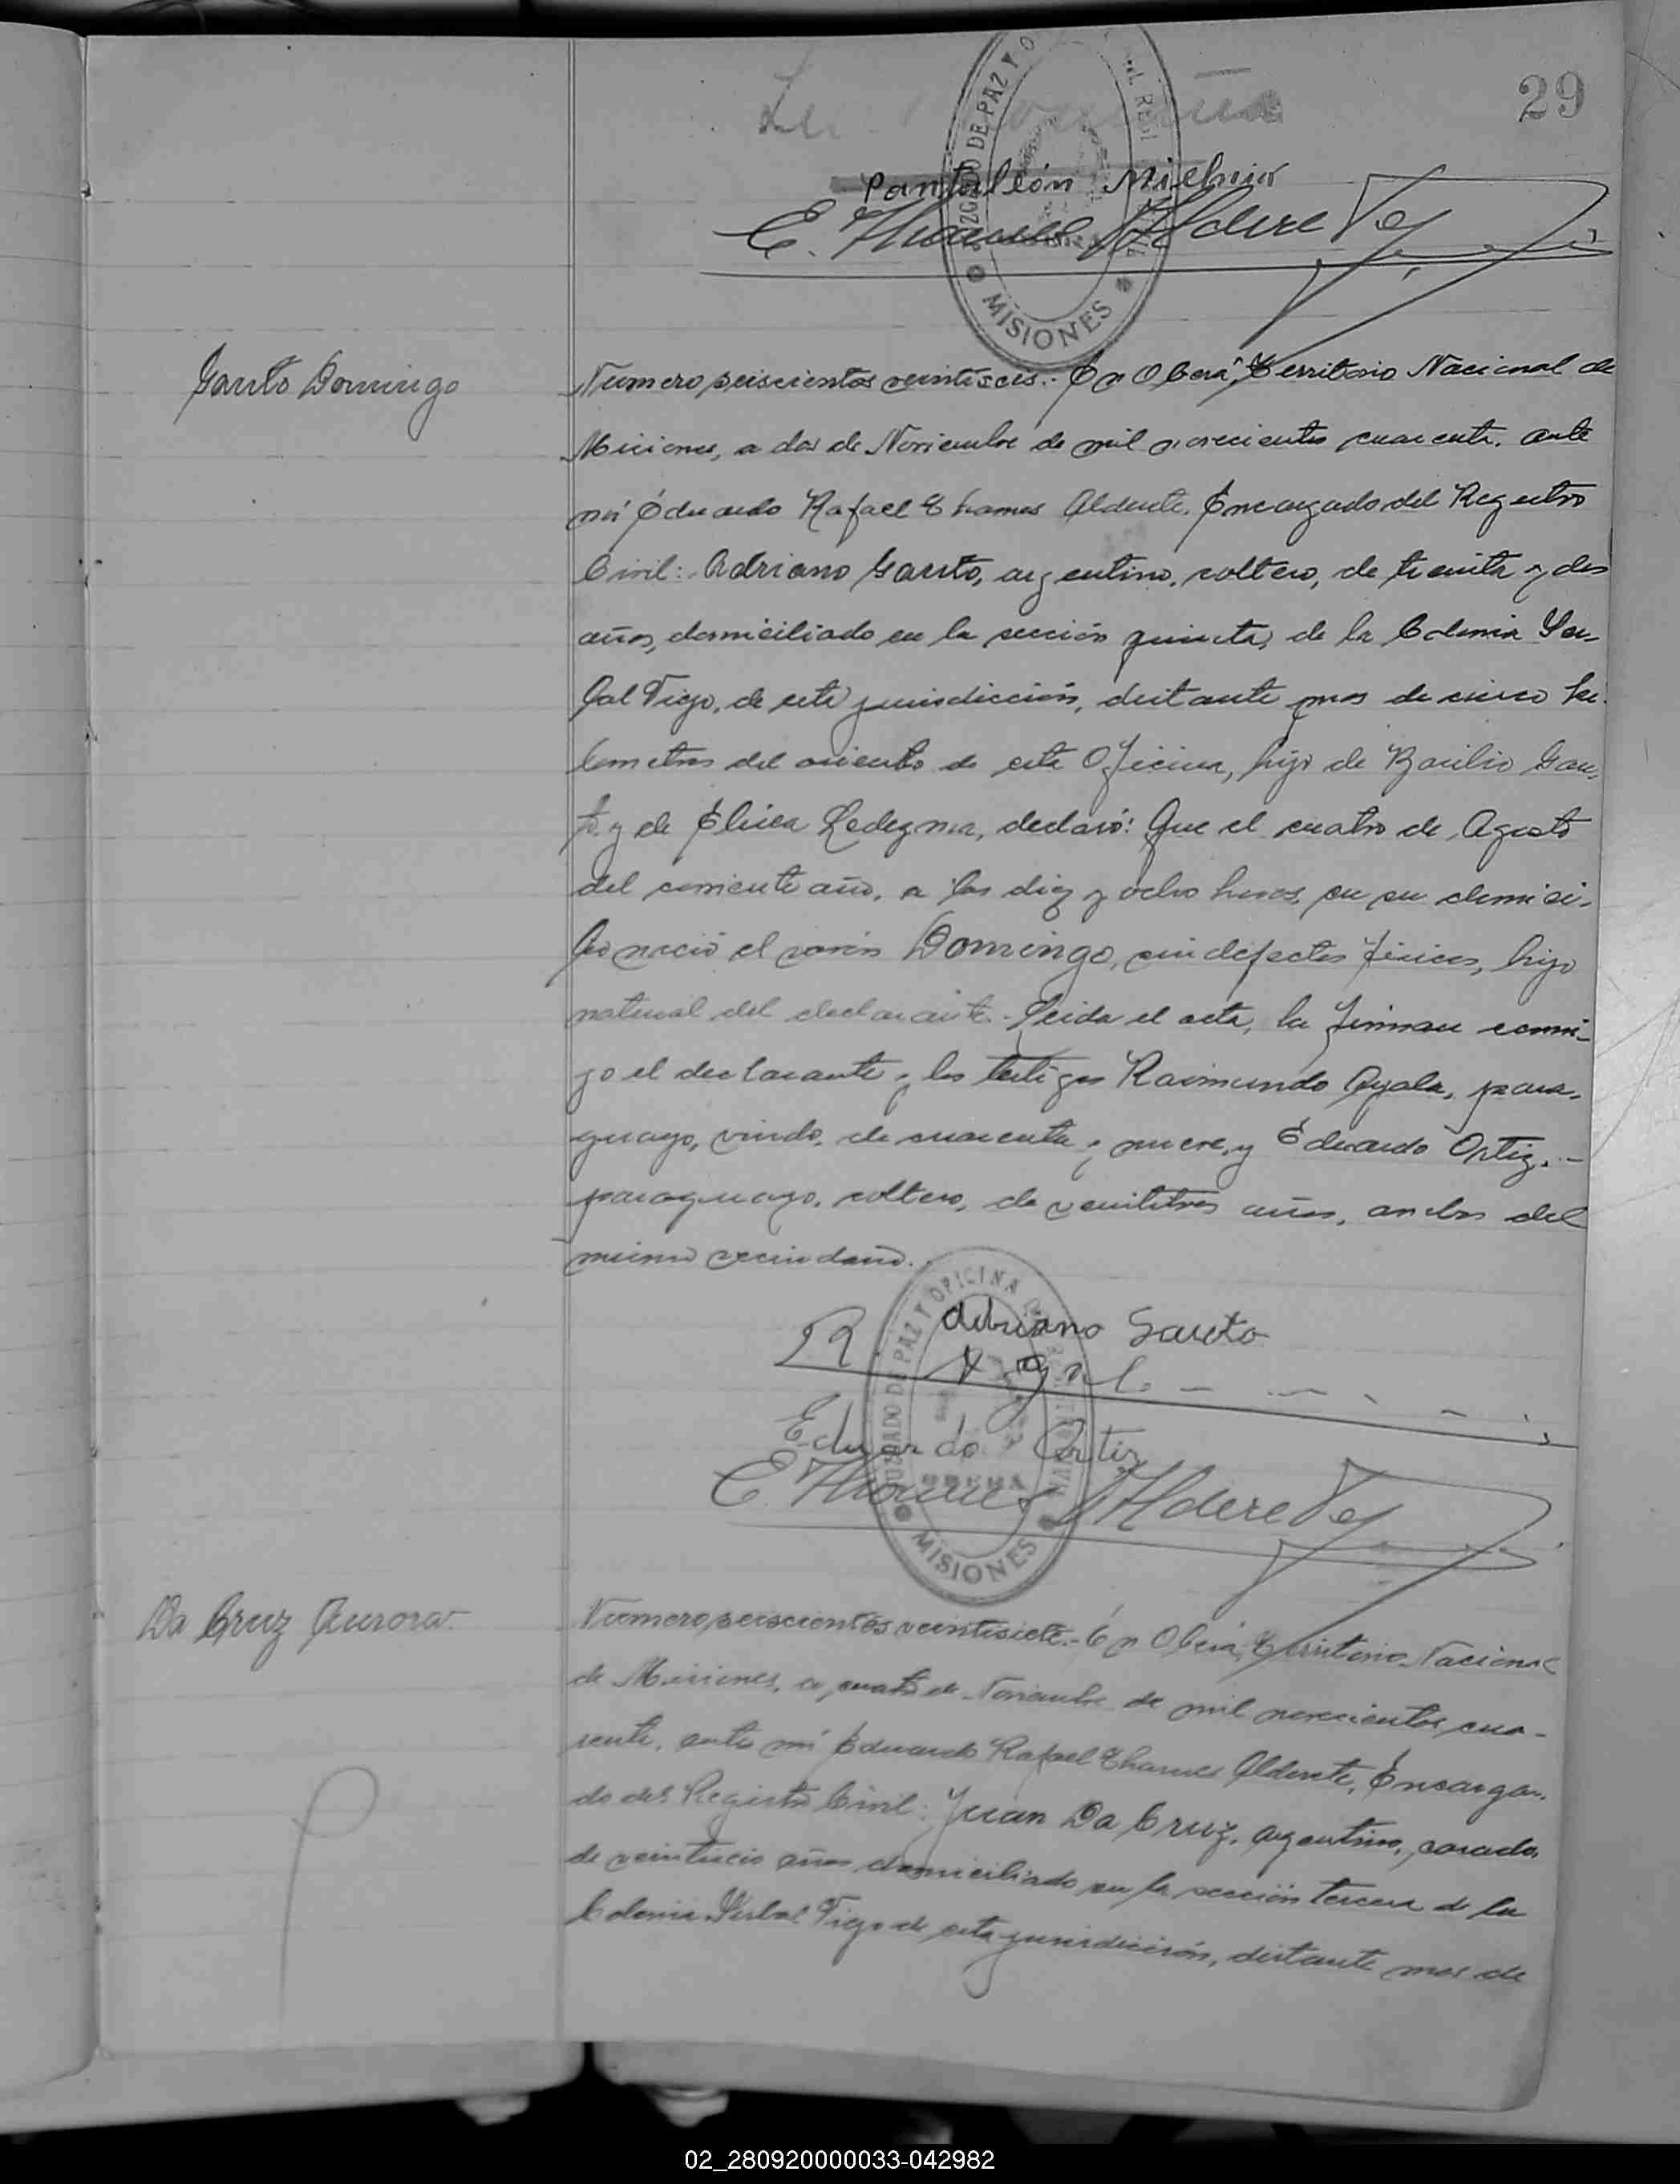 29
Pantaleón Mielnik
E. Thames Alderete
JUZGADO DE PAZ Y
MISIONES
Gauto Domingo
Numero seiscientos veintiseis.- En Oberá, Territorio Nacional de
Misiones, a dos de Noviembre de mil novecientos cuarenta, ante
mí Eduardo Rafael Thames Alderete, Encargado del Registro
Civil: Adriano Gauto, argentino, soltero, de treinta y dos
años, domiciliado en la sección quinta, de la Colonia Yer-
bal Viejo, de esta jurisdicción, distante mas de cinco ki-
lometros del asiento de esta Oficina, hijo de Basilio Gau-
to, y de Elisea Ledezma, declaró: Que el cuatro de Agosto
del corriente año, a las diez y ocho horas, en su domici-
lio nació el varón Domingo, sin defectos fisicos, hijo
natural del declarante.- Leida el acta, la firman conmi-
go el declarante y los testigos Raimundo Ayala, para-
guayo, viudo, de cuarenta y nueve, y Eduardo Ortiz,.-
paraguayo, soltero, de veintitres años, ambos del
mismo vecindario.-
JUZGADO DE PAZ Y OFICINA
Adriano Gauto
R. Ayala
Eduardo Ortiz
OBERA
E. Thames Alderete
MISIONES
Da Cruz Aurora
Numero seiscientos veintisiete.- En Oberá, Territorio Nacional
de Misiones, a cuatro de Noviembre de mil novecientos cua-
renta, ante mí Eduardo Rafael Thames Alderete, Encarga-
do del Registro Civil: Juan Da Cruz, argentino, casado,
de años domiciliado en la sección tercera de la
Colonia Yerbal Viejo de esta jurisdicción, distante mas de
02_280920000033-042982